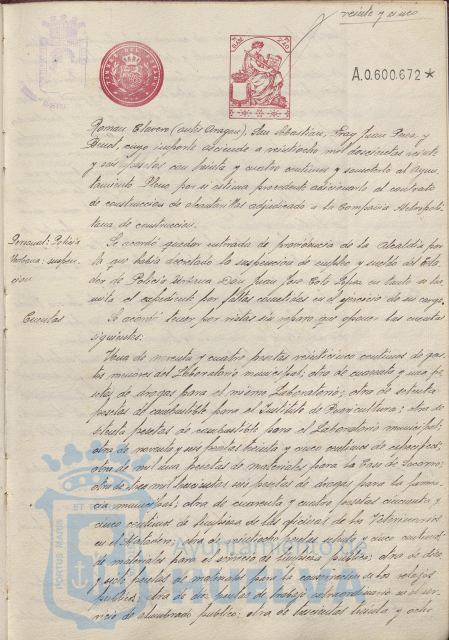 veinte y cinco
TIMBRE DEL ESTADO
A.0.600.672*
Roman Clavero (antes Aragon), San Sebastián, Fray Juan Perez y
cuyo importe asciende a veintiocho mil doscientas veinte
y seis pesetas con treinta y cuatro centimos y someterlo al Ayun-
tamiento Pleno por si estima procedente adicionarlo al contrato
de construccion de alcantarillas adjudicado a la Compañia Metropoli-
tana de construccion.
Personal: Policia
Urbana: suspen-
sion
Se acordó quedar enterada de providencia de la Alcaldia por
la que habia decretado la suspension de empleo y sueldo del
de Policia Urbana Don Juan José Soto Lopez en tanto se tra-
mita el expediente por faltas cometidas en el ejercicio de su cargo.
Cuentas
Se acordó tener por vistas sin reparo que oponer las cuentas
siguientes:
Una de noventa y cuatro pesetas veinticinco centimos de gas-
tos menores del Laboratorio municipal; otra de cuarenta y una pe-
setas de drogas para el mismo Laboratorio; otra de setenta
pesetas de combustible para el Instituto de Puericultura; otra de
setenta pesetas de combustible para el Laboratorio municipal;
otra de noventa y seis pesetas treinta y cinco centimos de
otra de mil una pesetas de materiales para la Casa de Socorro;
otra de tres mil trescientas seis pesetas de drogas para la farma-
cia municipal; otra de cuarenta y cuatro pesetas cincuenta y
cinco centimos de limpieza de la oficina de los Veterinarios
en el Matadero; otra de veintiocho pesetas setenta y cinco centimos
de materiales para el servicio de limpieza publica; otra de doce
y siete pesetas de materiales para la conservacion de los relojes
publicos; otra de diez pesetas de trabajo extraordinario en el ser-
vicio de alumbrado publico; otra de trescientas treinta y ocho
PORTUS MARIS ET
Ayuntamiento de
HUELVA